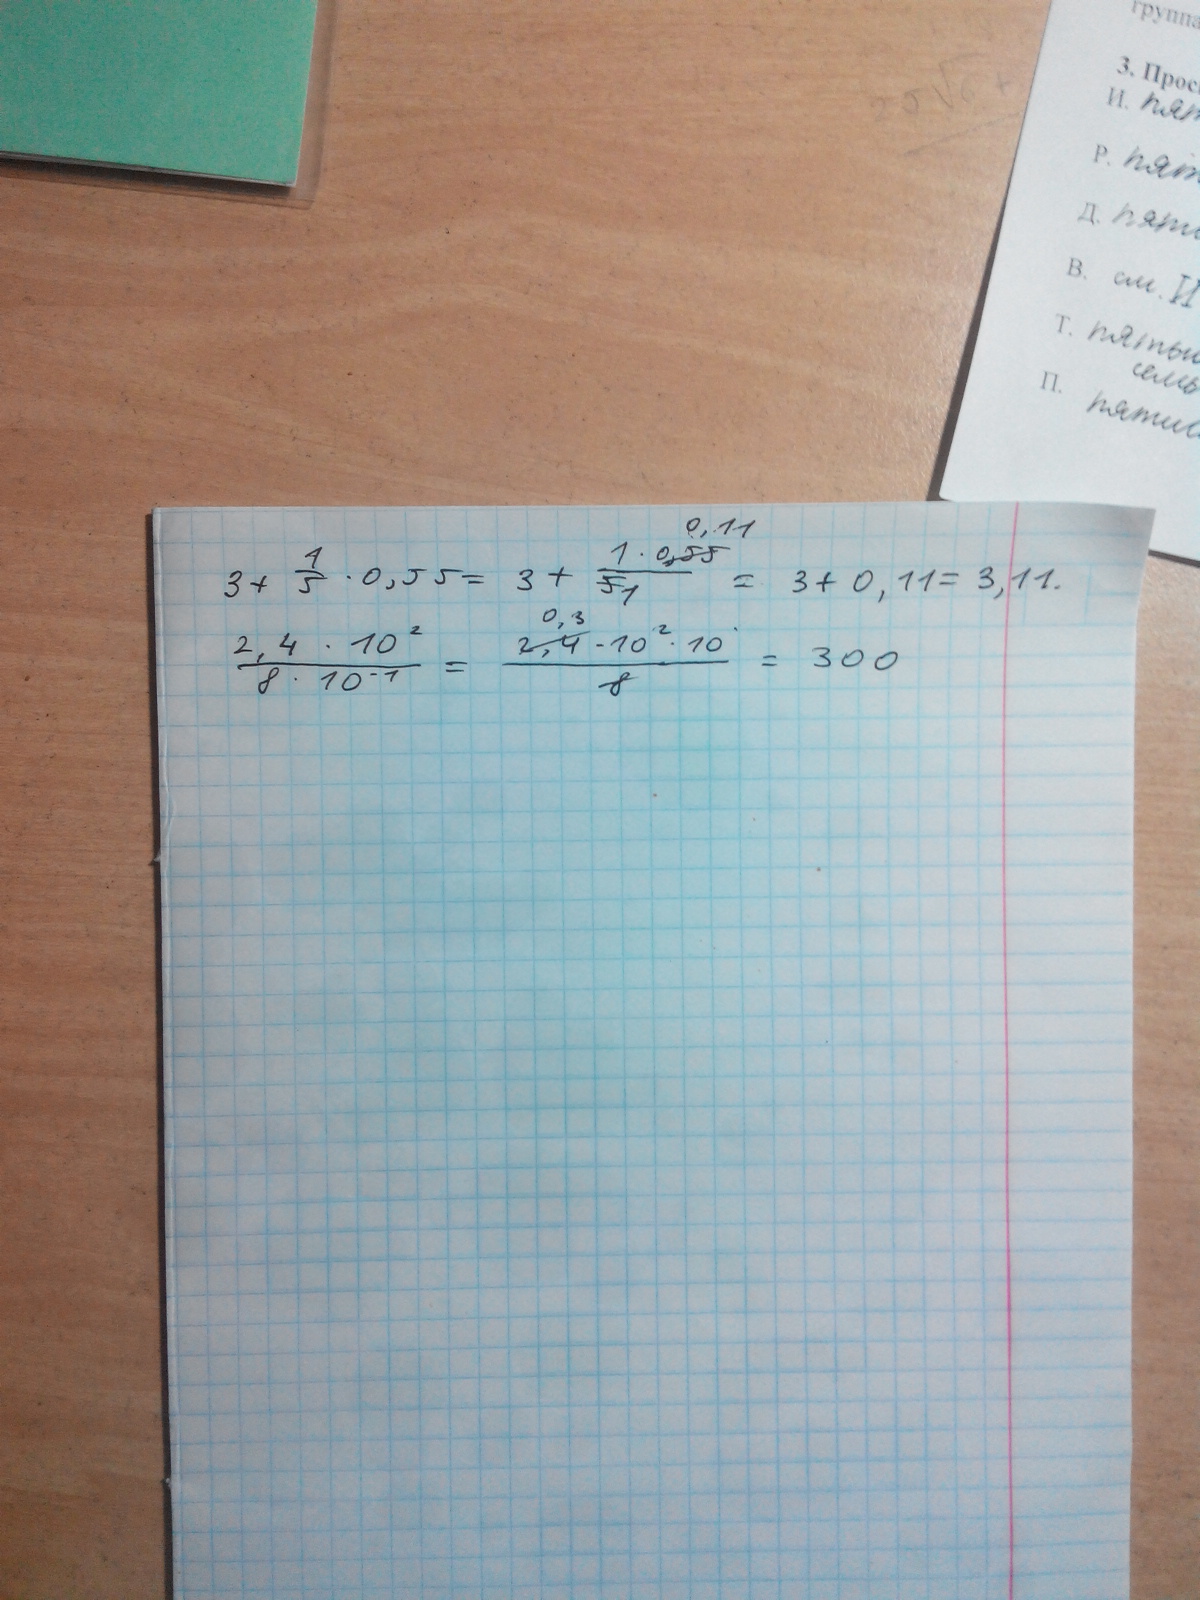 группа
3. Прос
И. пят
Р. пят
Д. пяти
В. см. И
Т. пятью
семь
П. пяти
25√6 +
3 + 1/5 · 0,55 = 3 + (1 · 0,55)/5 0,11 1 = 3 + 0,11 = 3,11.
(2,4 · 10²)/(8 · 10⁻¹) = (2,4 · 10² · 10)/8 0,3 = 300